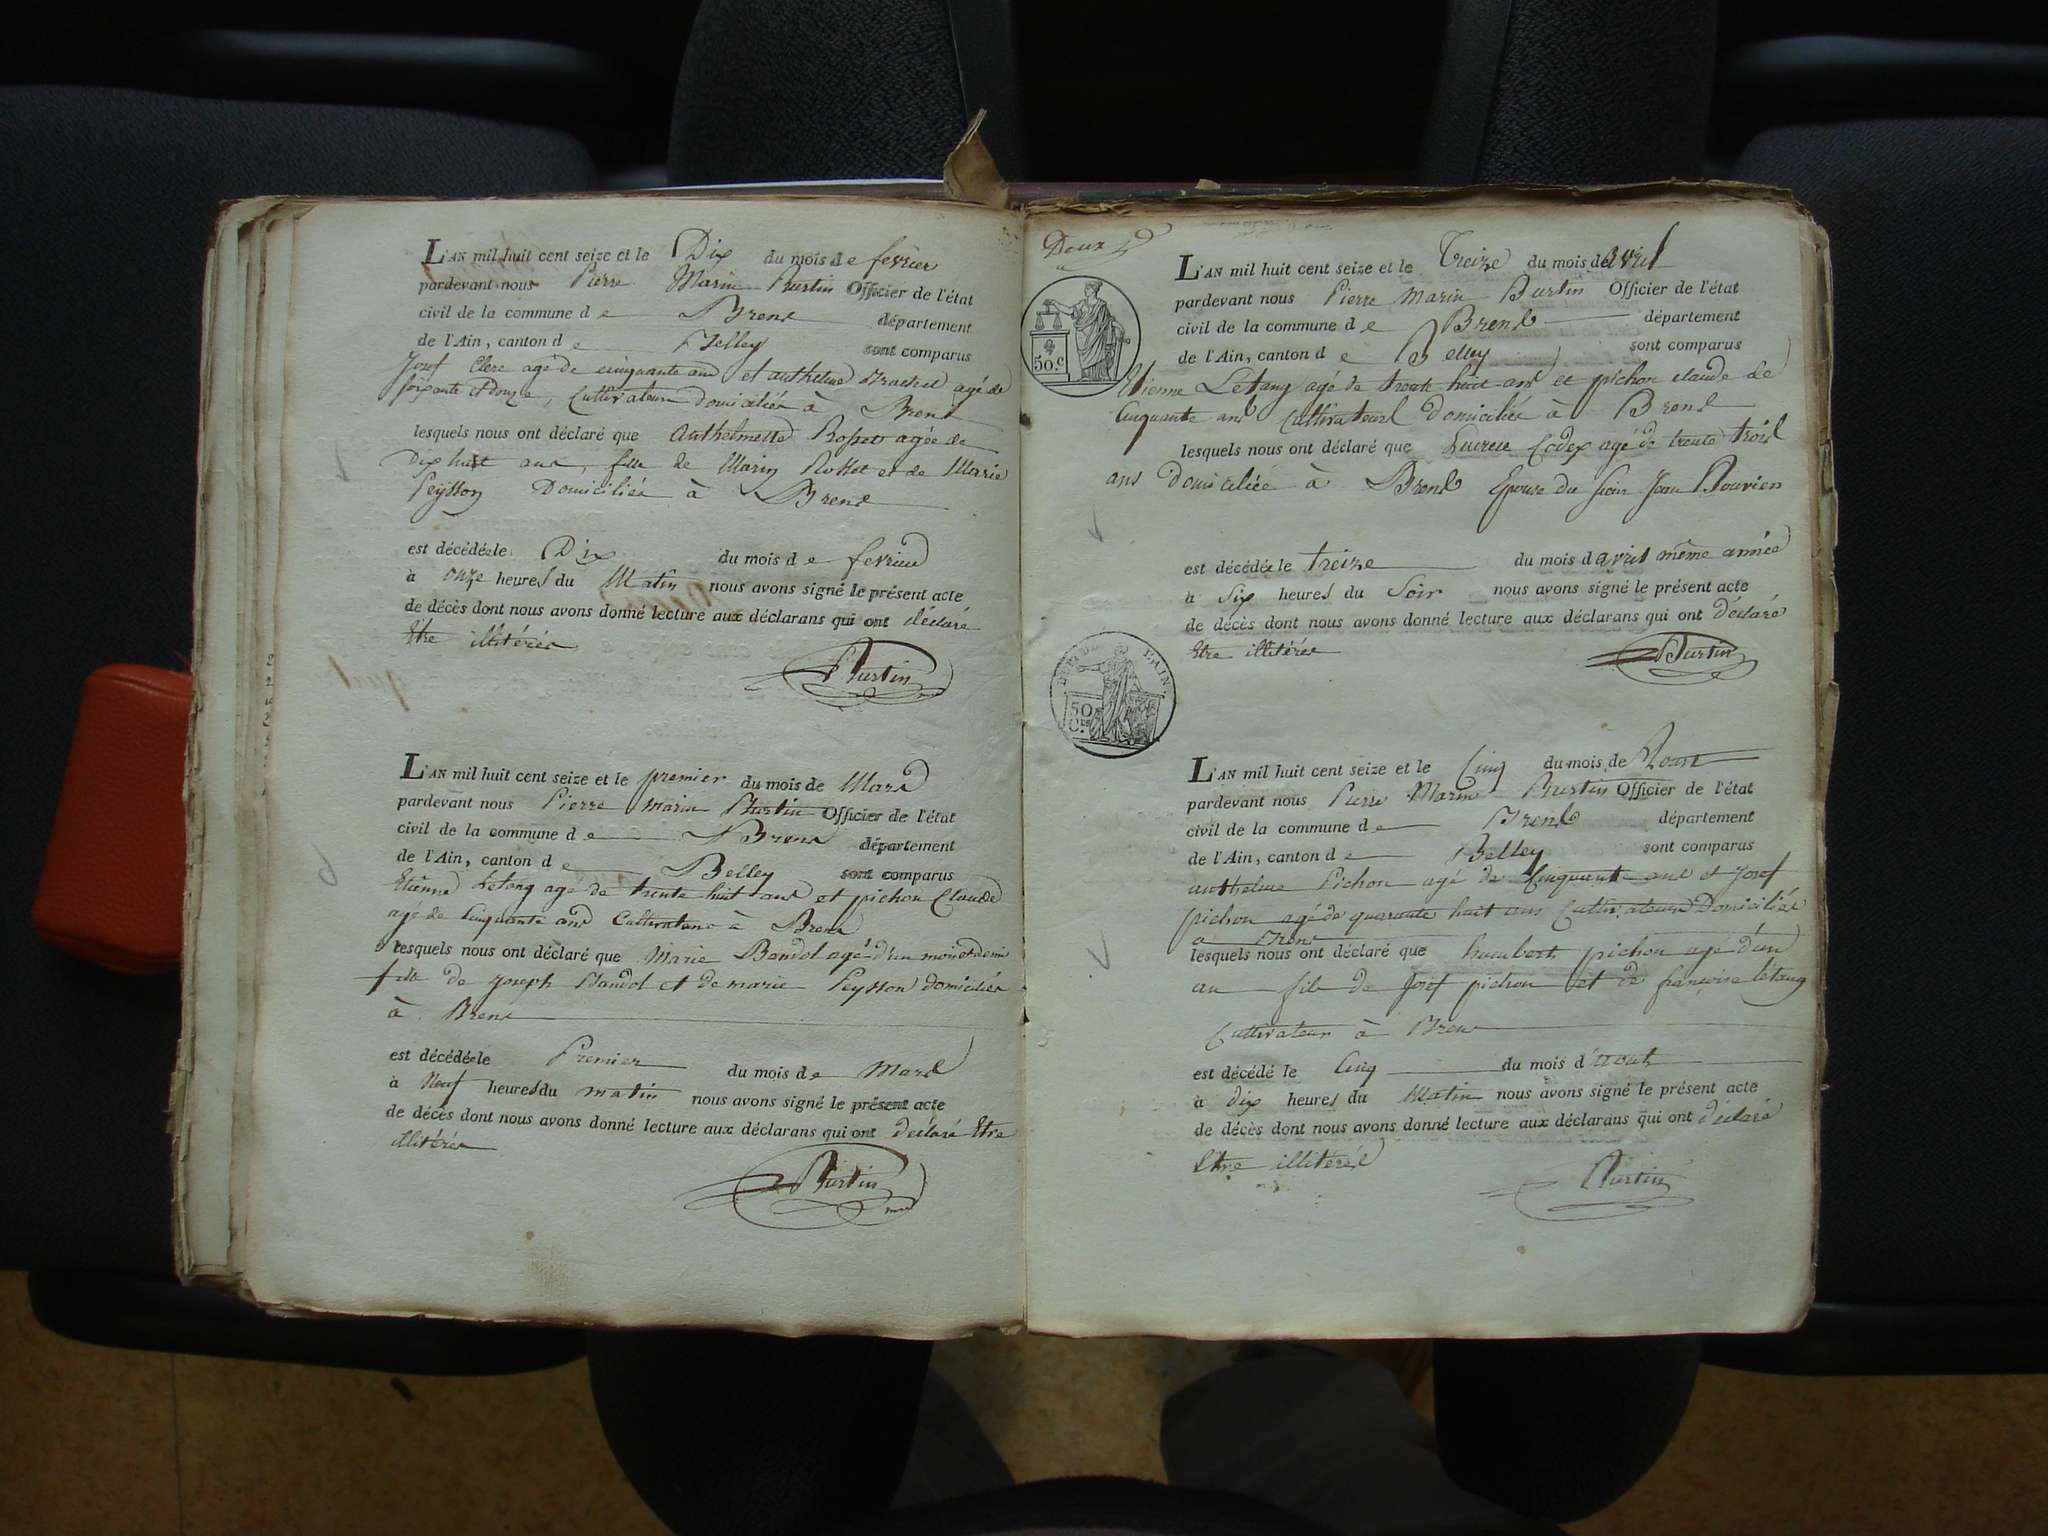 L'AN mil huit cent seize et le Dix du mois de fevrier
pardevant nous Pierre Marin Burtin Officier de l'état
civil de la commune de Brens département
de l'Ain, canton de Belley sont comparus
Josef Clerc agé de cinquante ans et anthelme agé de
soixante et douze, Cultivateurs domiciliés à Brens
lesquels nous ont déclaré que Anthelmette Rosset agée de
Dix huit ans, fille de Marin Rosset et de Marie
Peysson Domiciliés à Brens
est décédée le Dix du mois de fevrier
à onze heures du Matin nous avons signé le présent acte
de décès dont nous avons donné lecture aux déclarans qui ont déclaré
Etre illitérés
Burtin
L'AN mil huit cent seize et le premier du mois de Mars
pardevant nous Pierre marin Burtin Officier de l'état
civil de la commune de Brens département
de l'Ain, canton de Belley sont comparus
Etienne Letang age de trente huit ans et pichon Claude
agé de Cinquante ans Cultivateurs à Brens
lesquels nous ont déclaré que Marie Bandol agé d'un mois et demi
fille de Joseph Bandol et de marie Peysson domiciliés
à Brens
est décédée le Premier du mois de Mars
à Neuf heures du matin nous avons signé le présent acte
de décès dont nous avons donné lecture aux déclarans qui ont déclaré Etre
illitérés
Burtin
Doux
50.c
DEPT. DE L'AIN.
50 C.es
L'AN mil huit cent seize et le Treize du mois de avril
pardevant nous Pierre Marin Burtin Officier de l'état
civil de la commune de Brens département
de l'Ain, canton de Belley sont comparus
Etienne Letang agé de trente huit ans et pichon claude de
Cinquante ans Cultivateurs domiciliés à Brens
lesquels nous ont déclaré que Lucrece Codex agé de trente trois
ans Domiciliée à Brens Epouse du sieur Jean Bouvier
est décédée le treize du mois d avril même année
à Six heures du Soir nous avons signé le présent acte
de décès dont nous avons donné lecture aux déclarans qui ont déclaré
Etre illitérés
Burtin
L'AN mil huit cent seize et le Cinq du mois de Aout
pardevant nous Pierre Marin Burtin Officier de l'état
civil de la commune de Brens département
de l'Ain, canton de Belley sont comparus
anthelme Pichon agé de Cinquante ans et Josef
pichon agé de quarante huit ans Cultivateurs Domiciliés
a Brens
lesquels nous ont déclaré que humbert pichon agé d'un
an fils de Josef pichon et de françoise létang
Cultivateur à Brens
est décédé le Cinq du mois d'aout
à dix heures du Matin nous avons signé le présent acte
de décès dont nous avons donné lecture aux déclarans qui ont déclaré
Etre illitérés
Burtin